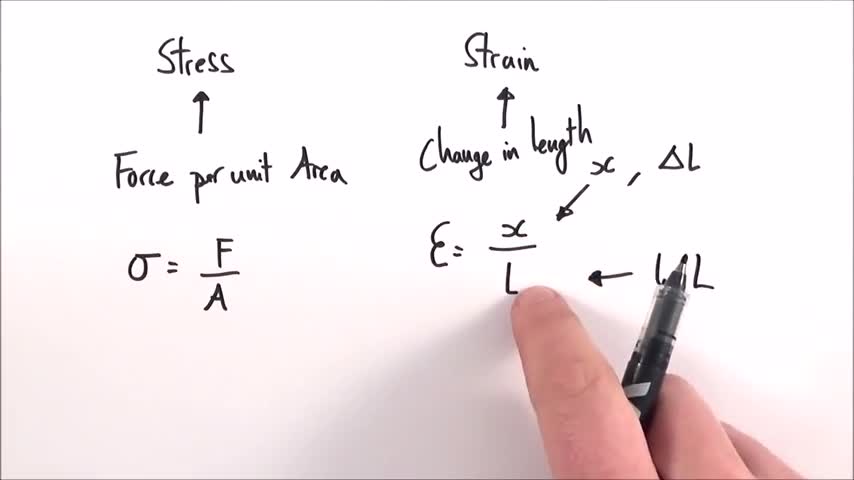 Stress
Force per unit Area
σ = F/A
Strain
Change in length
x, ΔL
ε = x/L
L